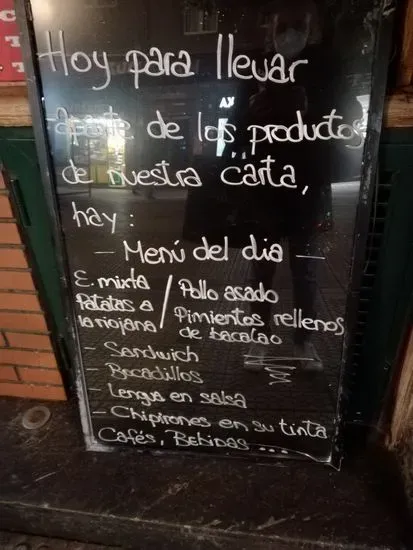 Hoy para llevar
aparte de los productos
de nuestra carta,
hay :
- Menú del dia -
E. mixta / Pollo asado
Patatas a la riojana / Pimientos rellenos de bacalao
- Sandwich
- Bocadillos
- Lengua en salsa
- Chipirones en su tinta
Cafés, Bebidas ...